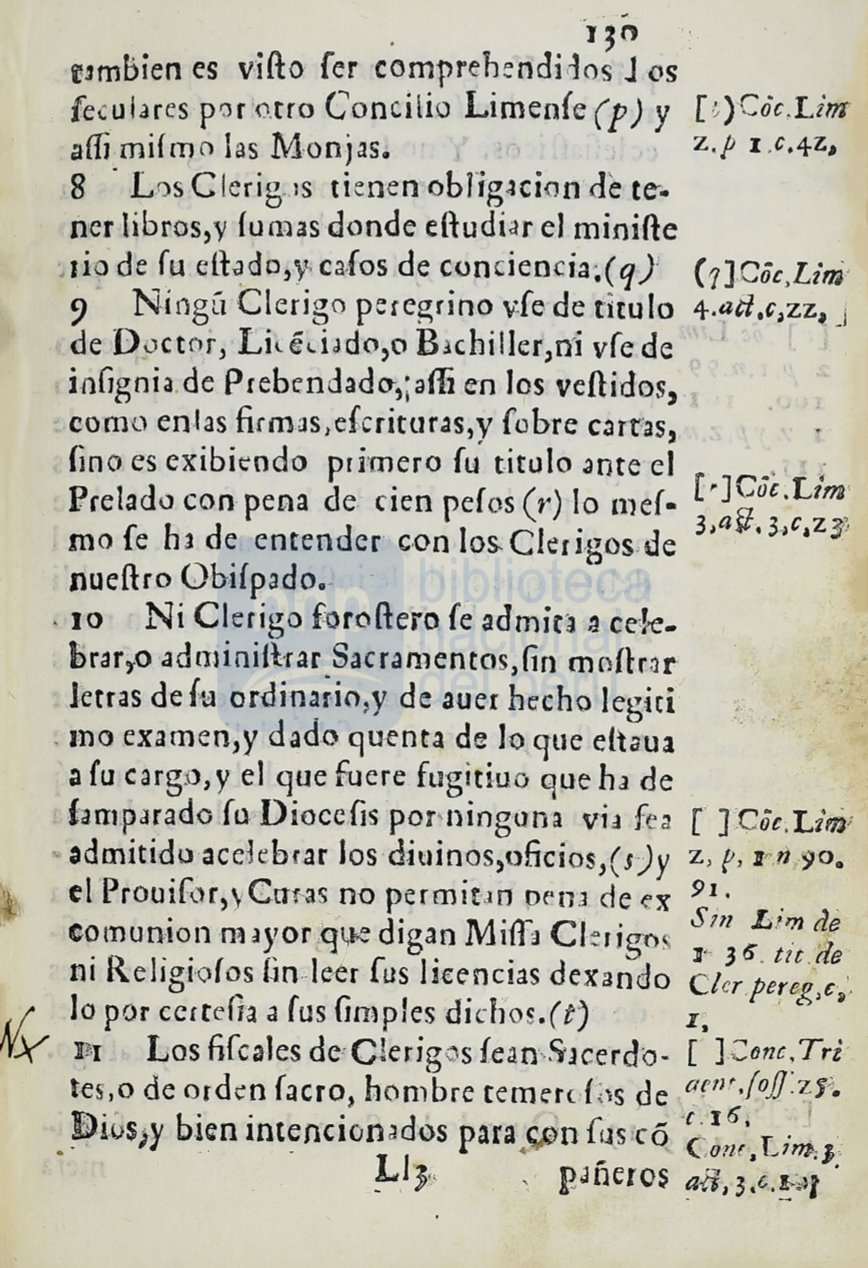 130
tambien es visto ser comprehendidos los
seculares por otro Concilio Limense (p) y
assi mismo las Monjas.
8 Los Clerigos tienen obligacion de te-
ner libros, y sumas donde estudiar el ministe
rio de su estado, y casos de conciencia. (q)
9 Ningũ Clerigo peregrino vse de titulo
de Doctor, Licẽciado, o Bachiller, ni vse de
insignia de Prebendado, assi en los vestidos,
como enlas firmas, escrituras, y sobre cartas,
sino es exibiendo primero su titulo ante el
Prelado con pena de cien pesos (r) lo mes-
mo se ha de entender con los Clerigos de
nuestro Obispado.
10 Ni Clerigo forostero se admita a cele-
brar, o administrar Sacramentos, sin mostrar
letras de su ordinario, y de auer hecho legiti
mo examen, y dado quenta de lo que estaua
a su cargo, y el que fuere fugitiuo que ha de
samparado su Diocesis por ninguna via sea
admitido acelebrar los diuinos, oficios, (s) y
el Prouisor, y Curas no permitan pena de ex
comunion mayor que digan Missa Clerigos
ni Religiosos sin leer sus licencias dexando
lo por certesia a sus simples dichos. (t)
11 Los fiscales de Clerigos sean Sacerdo-
tes, o de orden sacro, hombre temerosos de
Dios, y bien intencionados para con sus cõ
Ll3 pañeros
[ )Cõc. Lim
2. p 1. c. 42,
(q]Cõc, Lim
4. act. c, 22,
[r]Cõc. Lim
3, act. 3, c, 23
[ ] Cõc. Lim
2, p, 1 n 90.
91.
Sin Lim de
1 36. tit. de
Cler pereg. c,
1,
[ ]Conc, Tri
sess. 25.
c. 16,
Conc, Lim. 3
act, 3. c.
Nx
biblioteca